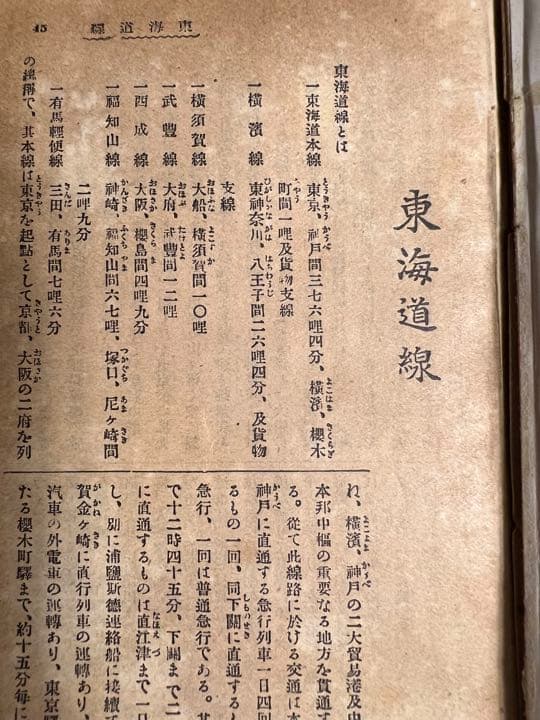 東海道線
45
東海道線
東海道線とは
一東海道本線 東京、神戸間三七六哩四分、橫濱、櫻木
町間一哩及貨物支線
一橫濱線 東神奈川、八王子間二六哩四分、及貨物
支線
一橫須賀線 大船、橫須賀間一〇哩
一武豐線 大府、武豐間一二哩
一西成線 大阪、櫻島間四哩九分
一福知山線 神崎、福知山間六七哩、塚口、尼ヶ崎間
二哩九分
一有馬輕便線 三田、有馬間七哩六分
の總稱で、其本線は東京を起點として京都、大阪の二府を列
ね、橫濱、神戸の二大貿易港及中
本邦中樞の重要なる地方を貫通す
る。從て此線路に於ける交通は本
神戸に直通する急行列車一日四回
るもの一回、同下關に直通する
急行、一回は普通急行である。其
で十二時四十五分、下關まで二
に直通するものは直江津まで一日
し、別に浦鹽斯德連絡船に接續
賀金ヶ崎に直行列車の運轉あり、
汽車の外電車の運轉あり、東京驛
たる櫻木町驛まで、約十五分每に